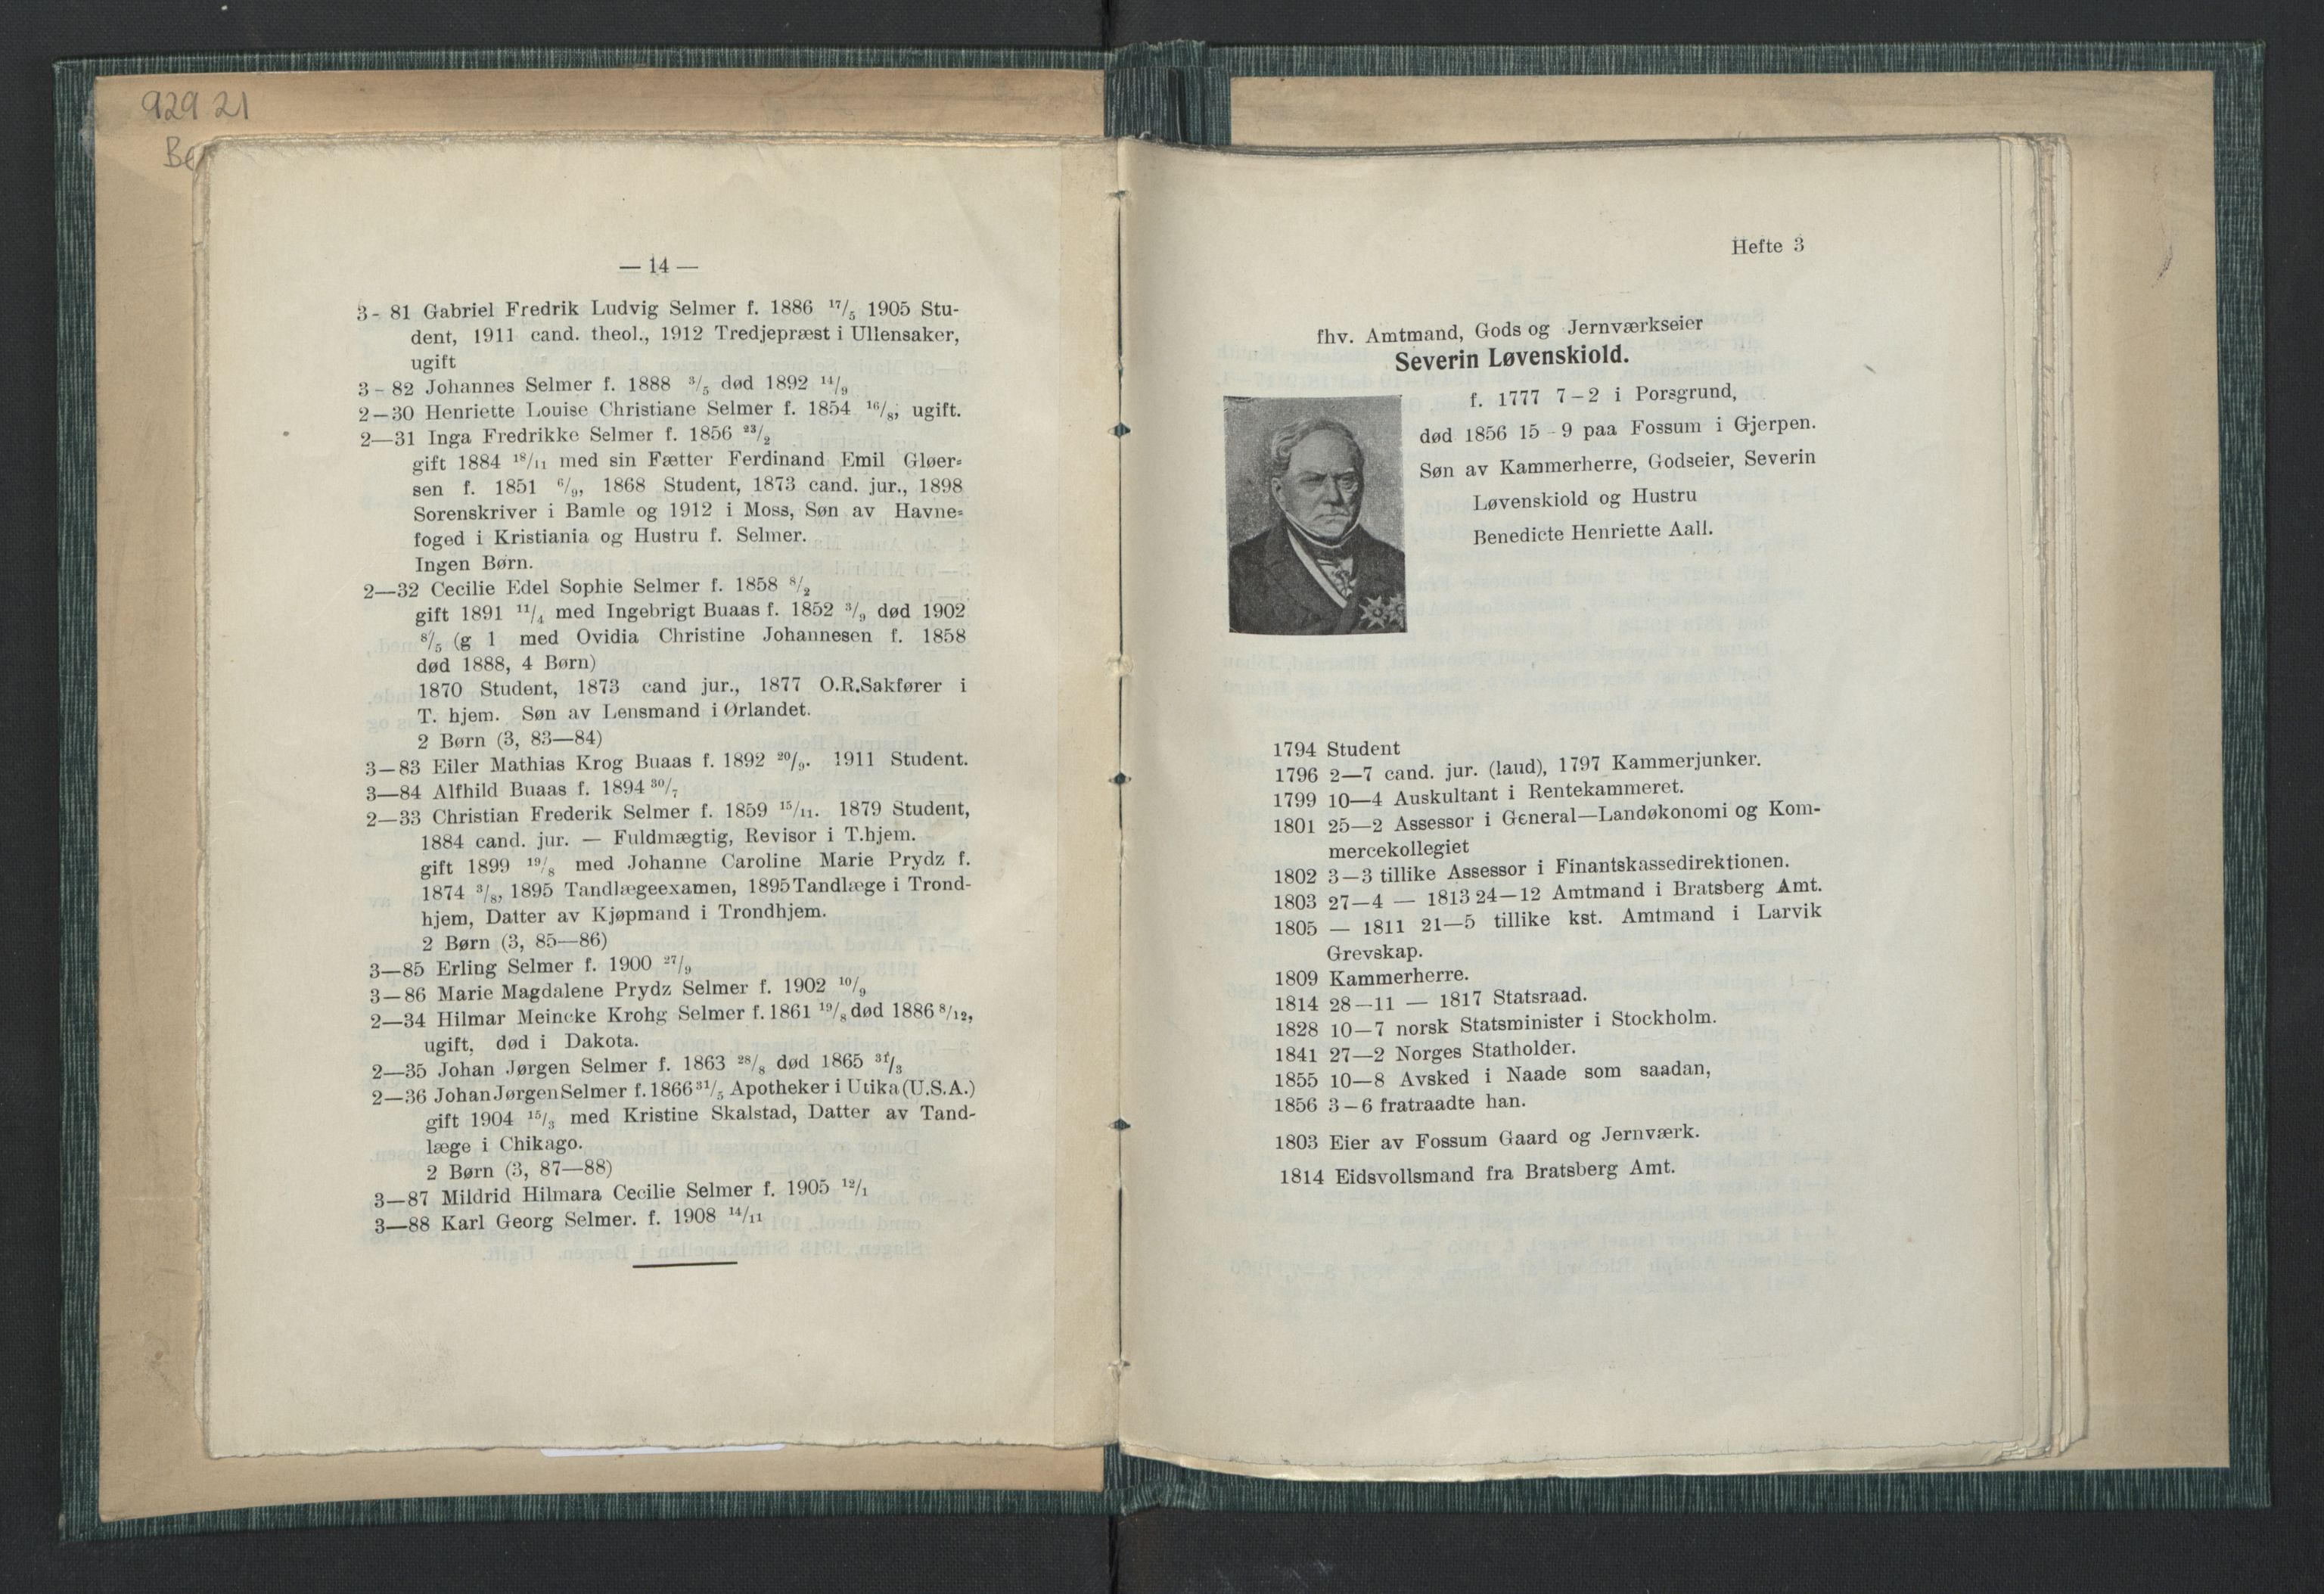 929 21
Be
— 14 —
3- 81 Gabriel Fredrik Ludvig Selmer f. 1886 17/5 1905 Stu-
dent, 1911 cand. theol., 1912 Tredjepræst i Ullensaker,
ugift
3-82 Johannes Selmer f. 1888 3/5 død 1892 14/9
2—30 Henriette Louise Christiane Selmer f. 1854 16/8, ugift.
2—31 Inga Fredrikke Selmer f. 1856 23/2
gift 1884 18/11 med sin Fætter Ferdinand Emil Gløer=
sen f. 1851 6/9, 1868 Student, 1873 cand. jur., 1898
Sorenskriver i Bamle og 1912 i Moss, Søn av Havne=
foged i Kristiania og Hustru f. Selmer.
Ingen Børn.
2—32 Cecilie Edel Sophie Selmer f. 1858 8/2
gift 1891 11/4 med Ingebrigt Buaas f. 1852 3/9 død 1902
8/5 (g 1 med Ovidia Christine Johannesen f. 1858
død 1888, 4 Børn)
1870 Student, 1873 cand jur., 1877 O.R.Sakfører i
T. hjem. Søn av Lensmand i Ørlandet.
2 Børn (3, 83—84)
3—83 Eiler Mathias Krog Buaas f. 1892 20/9. 1911 Student.
3—84 Alfhild Buaas f. 1894 30/7
2—33 Christian Frederik Selmer f. 1859 15/11. 1879 Student,
1884 cand. jur. — Fuldmægtig, Revisor i T.hjem.
gift 1899 19/8 med Johanne Caroline Marie Prydz f.
1874 3/8, 1895 Tandlægeexamen, 1895 Tandlæge i Trond-
hjem, Datter av Kjøpmand i Trondhjem.
2 Børn (3, 85—86)
3—85 Erling Selmer f. 1900 27/9
3—86 Marie Magdalene Prydz Selmer f. 1902 10/9
2—34 Hilmar Meincke Krohg Selmer f. 1861 19/8 død 1886 8/12,
ugift, død i Dakota.
2—35 Johan Jørgen Selmer f. 1863 28/8 død 1865 31/3
2—36 Johan Jørgen Selmer f. 1866 31/5 Apotheker i Utika (U.S.A.)
gift 1904 15/3 med Kristine Skalstad, Datter av Tand-
læge i Chikago.
2 Børn (3, 87—88)
3—87 Mildrid Hilmara Cecilie Selmer f. 1905 12/1
3—88 Karl Georg Selmer. f. 1908 14/11
Hefte 3
fhv. Amtmand, Gods og Jernværkseier
Severin Løvenskiold.
f. 1777 7—2 i Porsgrund,
død 1856 15-9 paa Fossum i Gjerpen.
Søn av Kammerherre, Godseier, Severin
Løvenskiold og Hustru
Benedicte Henriette Aall.
1794 Student
1796 2—7 cand. jur. (laud), 1797 Kammerjunker.
1799 10—4 Auskultant i Rentekammeret.
1801 25—2 Assessor i General—Landøkonomi og Kom-
mercekollegiet
1802 3—3 tillike Assessor i Finantskassedirektionen.
1803 27—4 — 1813 24—12 Amtmand i Bratsberg Amt.
1805 — 1811 21—5 tillike kst. Amtmand i Larvik
Grevskap.
1809 Kammerherre.
1814 28—11 — 1817 Statsraad.
1828 10—7 norsk Statsminister i Stockholm.
1841 27—2 Norges Statholder.
1855 10—8 Avsked i Naade som saadan,
1856 3—6 fratraadte han.
1803 Eier av Fossum Gaard og Jernværk.
1814 Eidsvollsmand fra Bratsberg Amt.